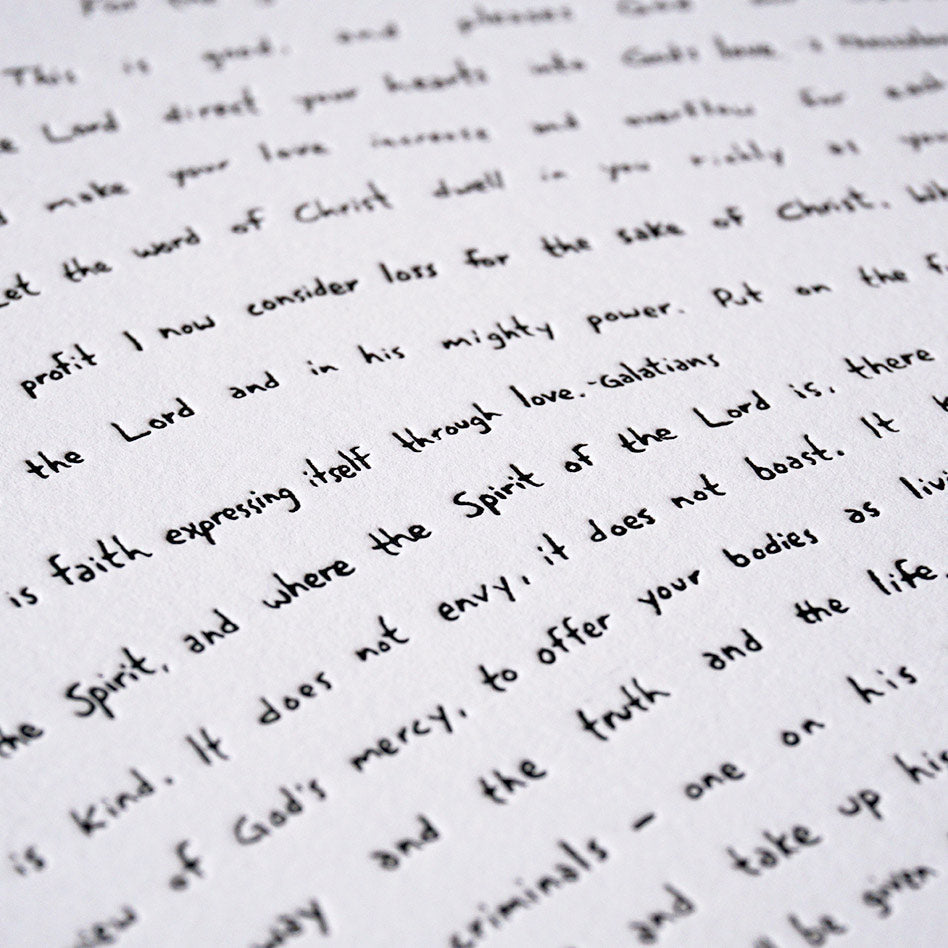 For the
This is good, and pleases God
Lord direct your hearts into God's love
make your love increase and overflow for each
Let the word of Christ dwell in you richly as you
profit I now consider loss for the sake of Christ.
the Lord and in his mighty power. Put on the
is faith expressing itself through love.-Galatians
the Spirit, and where the Spirit of the Lord is, there
is kind. It does not envy, it does not boast. It
view of God's mercy, to offer your bodies as
way and the truth and the life.
criminals – one on his
and take up his
be given